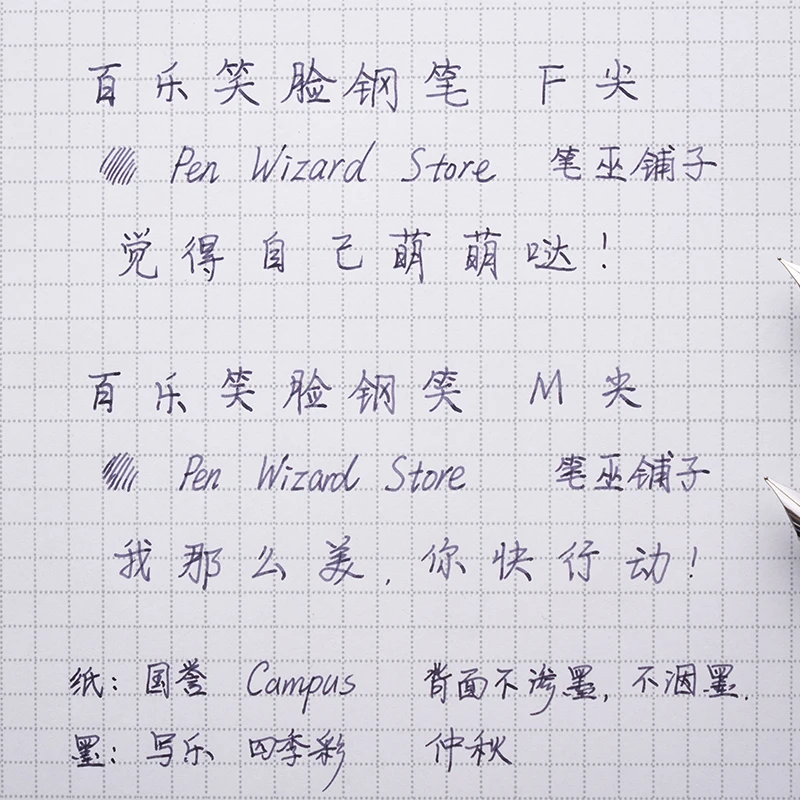 百乐笑脸钢笔 F 尖
Pen Wizard Store 笔巫铺子
觉得自己萌萌哒!
百乐笑脸钢笑 M 尖
Pen Wizard Store 笔巫铺子
我那么美,你快行动!
纸: 国誉 Campus 背面不渗墨, 不洇墨.
墨: 写乐 四季彩 仲秋